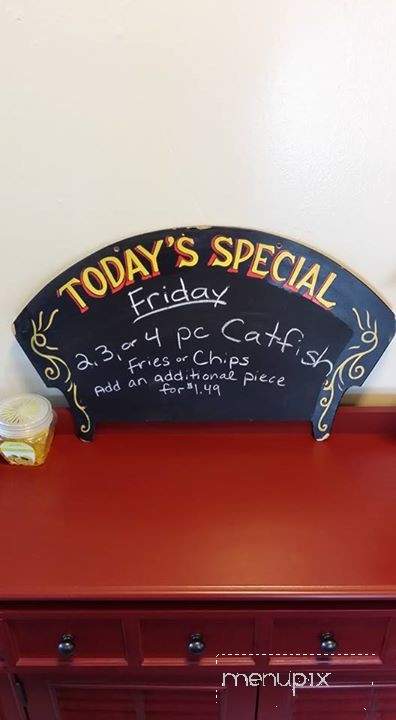 TODAY'S SPECIAL
Friday
2, 3, or 4 pc Catfish
Fries or Chips
Add an additional piece
for $1.49
menupix